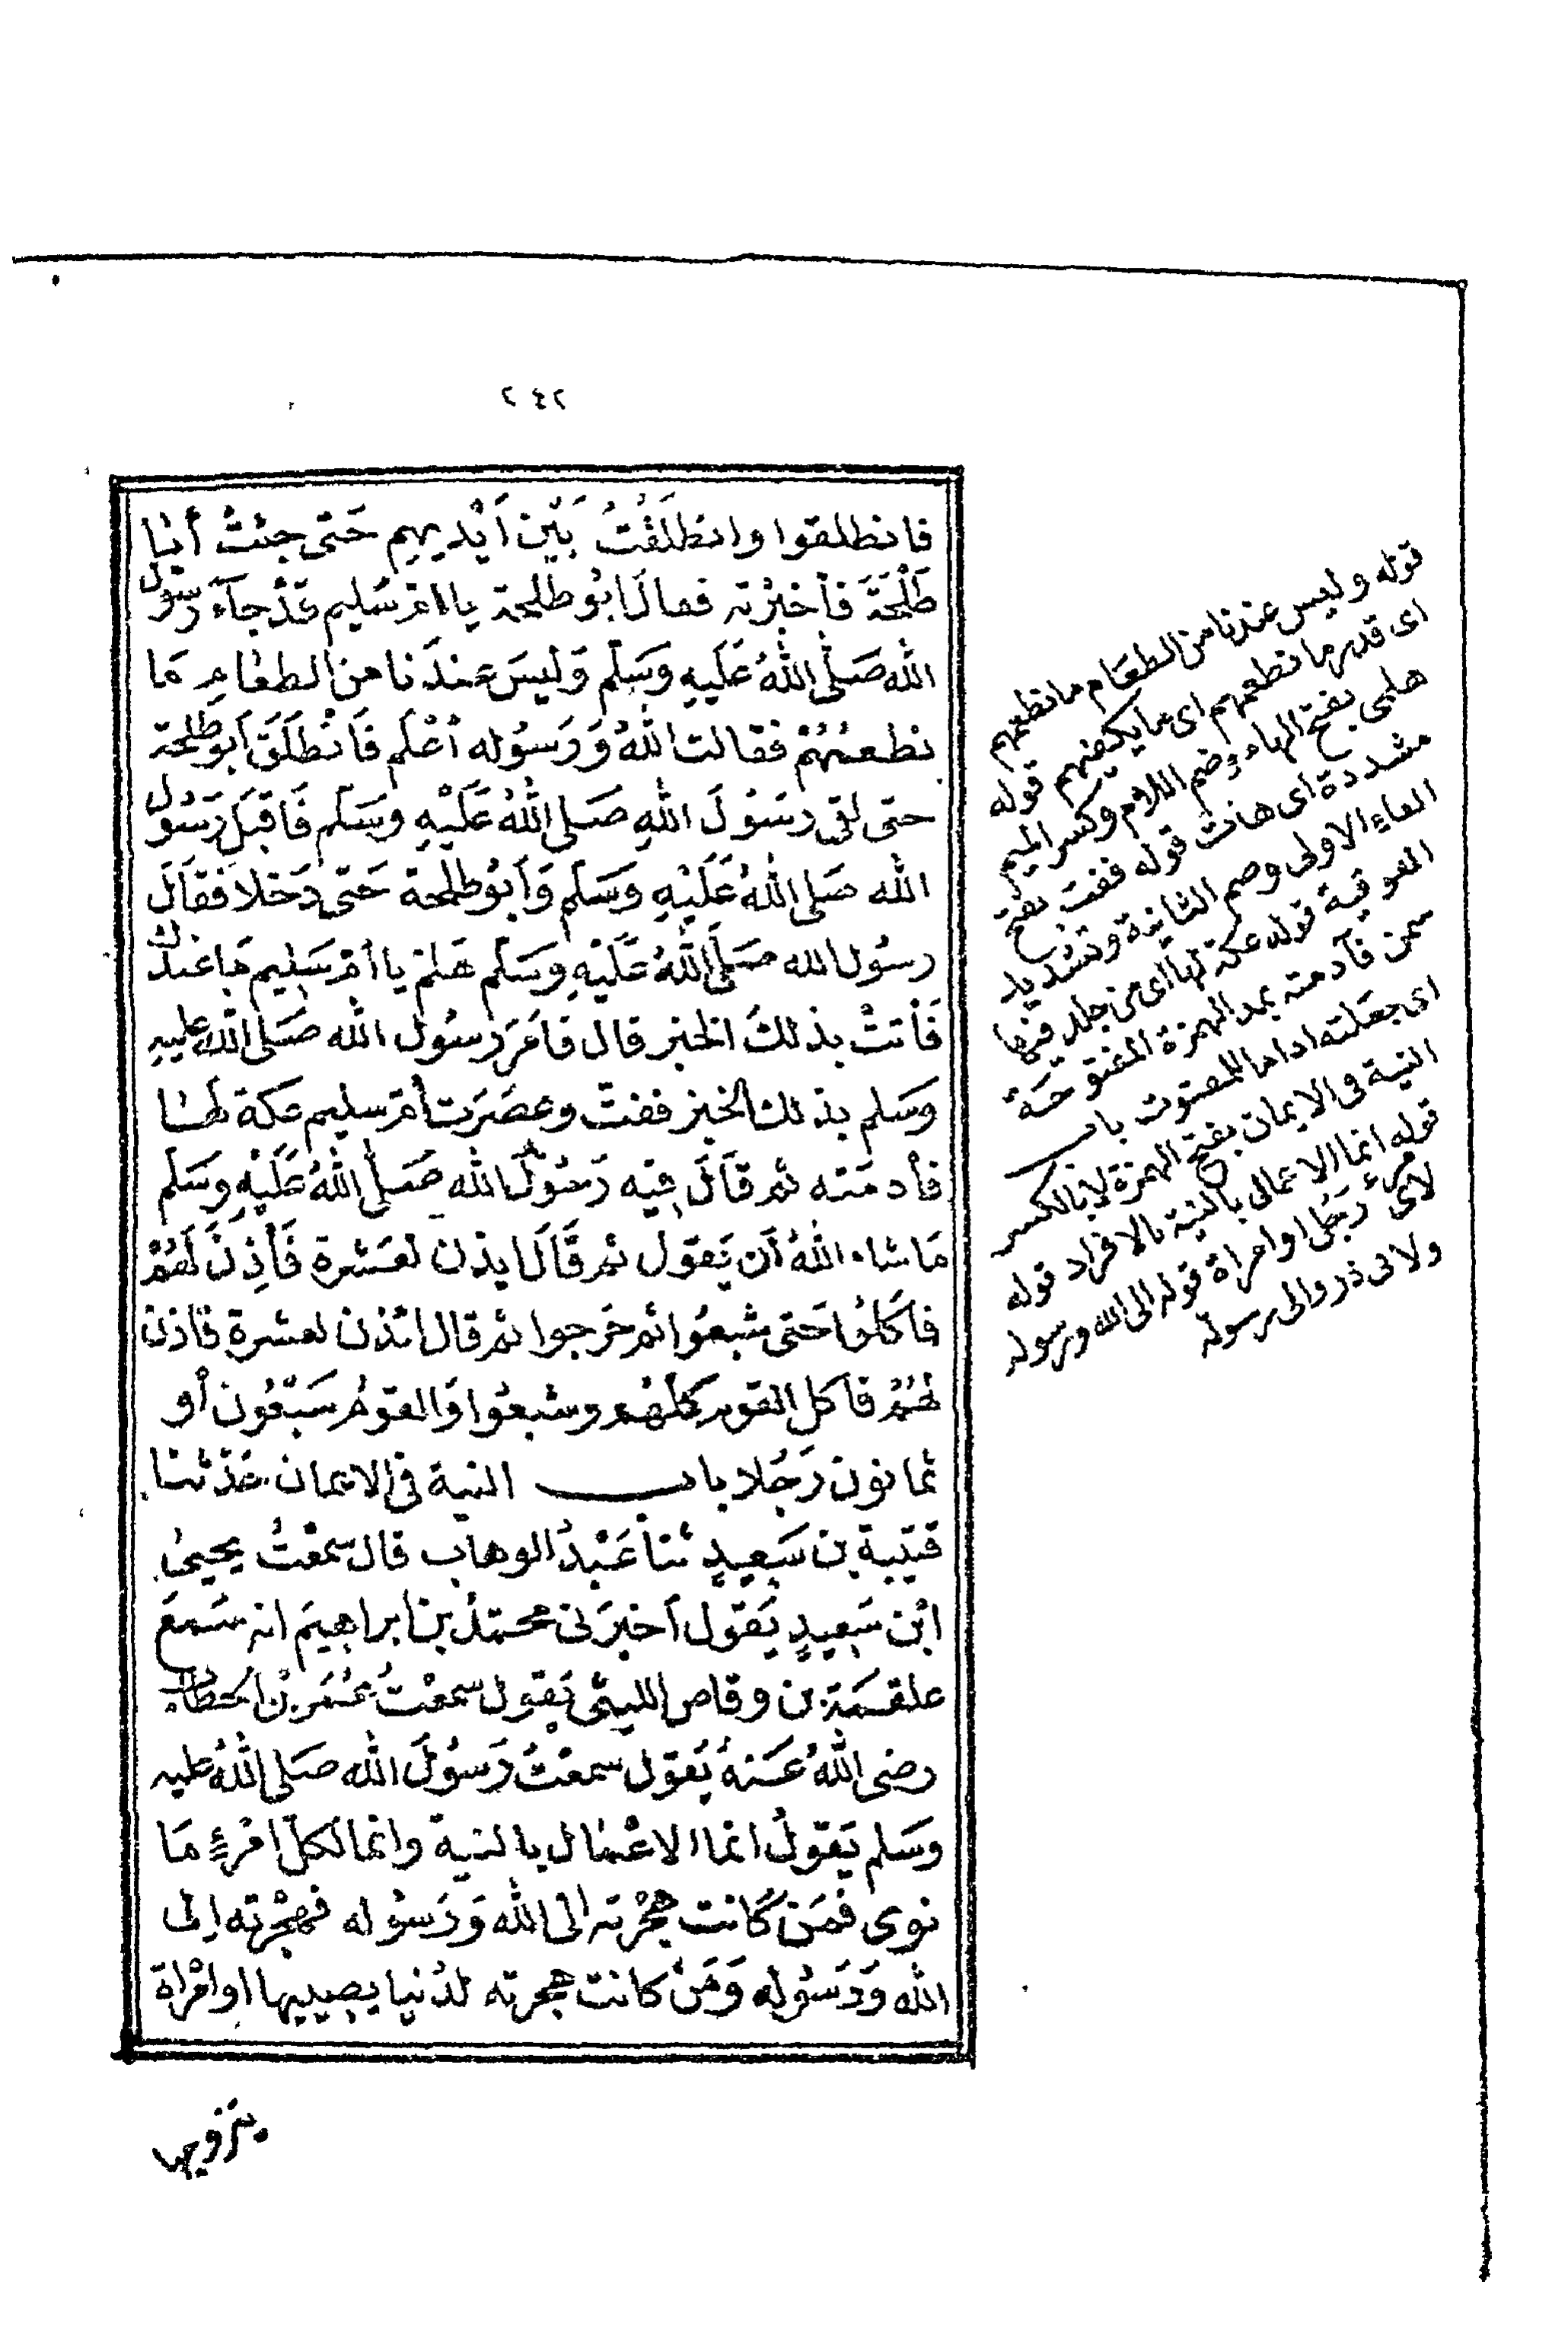 ٢٤٢
فانطلقوا وانطلَقْتُ بَيْن اَيْديهِم حَتى جئتُ أبا
طَلْحَةَ فأخبرْته فقالَ ابُو طلحة يا ام سُليم قَدْ جَآءَ رسول
الله صَلى اللهُ عَلَيهِ وَسَلم وَليسَ عندَنا من الطعامِ مَا
نطعمُهُمْ فقالت اللهُ وَرَسُوله أعْلم فَانْطَلَقَ اَبو طلحة
حتى لقى رسَوُلَ اللهِ صَلى اللهُ عَلَيْهِ وسَلم فَاقبَلَ رَسوُل
الله صَلى اللهُ عَلَيْهِ وَسَلم وَاَبوُ طلحة حَتى دَخلا فقَالَ
رسُول الله صَلى اللهُ عَلَيْهِ وسَلم هَلم يا أم سَليم مَا عندك
فَأتتْ بذلكَ الخبز قال فأمَرَ رسُول الله صَلى الله عليهِ
وسَلم بذلك الخبز ففتّ وعصَرَت أم سليم عكة لها
فأدمَته ثم قَالَ فيْه رَسُوُلُ الله صَلى اللهُ عَلَيْهِ وسَلم
مَا شاء اللهُ أن يَقول ثم قَالَ ايذن لعَشرة فَأذِنَ لَهُمْ
فاكَلوُا حَتى شبعوُا ثم خرَجوا ثم قال ائذن لعشرة فأذن
لهُمْ فأكل القوم كلّهُم وشبعُوا وَالقومُ سَبْعُون أو
ثمانون رَجُلا باب النية فى الايمان حَدّثنا
قتيبة بن سَعِيدٍ ثنا عَبْدُ الوهاب قال سمعْتُ يحيىٰ
ابْن سَعِيدٍ يَقول أخبرَنى محمّدُ بن ابراهيمَ انه سَمعَ
علقمَة بن وقاص الليثى يَقول سمعْتُ عُمَر بْن الخطاب
رضى اللهُ عَنهُ يَقول سمعْتُ رَسُولَ الله صَلى اللهُ عليه
وَسَلم يَقوُلُ انما الاعْمال بالنية وانما لكلّ امْرِئٍ مَا
نوى فَمَن كَانت هجْرته الى الله وَرَسُوله فهجْرته اِلى
الله وَرَسُولِه وَمَنْ كانت هجرته لدُنيا يصيبها او امْراة
يتزوجها
قوله وليس عندنا من الطعَام ما نطعمهم
اى قدر ما نطعمهم اى ما يكفيهم قوله
هلمى بفتح الهاء وضم اللام وكسر الميم
مشددة اى هات قوله ففتّ بفتح
الفاء الاولى وضم الثانية وتشديد
الفوقية قوله عكة لها اى من جلد فيها
سمن فآدمته بمد الهمزة المفتوحة
اى جعَلته اداما للمفتوت باب
النية فى الايمان بفتح الهمزة لا بالكسر
قوله انما الاعمال بالنية بالافراد قوله
لامرئ رَجُل او امراة قوله الى الله ورسوله
ولابى ذر والى رسوله